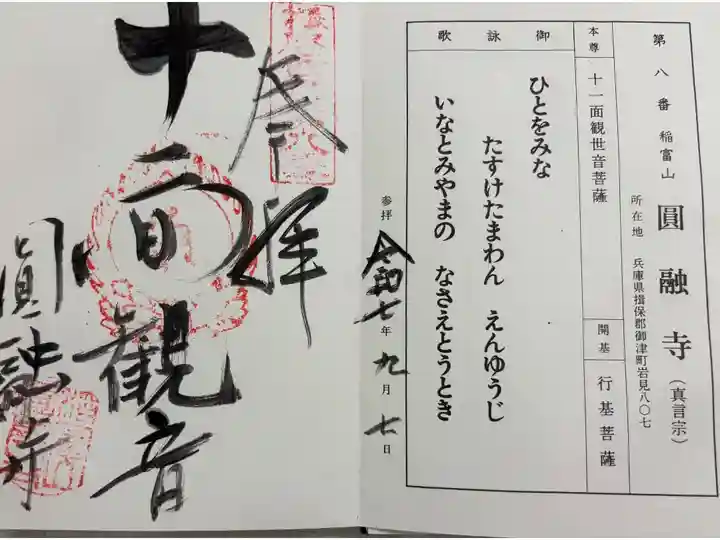 第八番 稲富山 圓融寺（真言宗）
所在地 兵庫県揖保郡御津町岩見八〇七
本尊 十一面観世音菩薩
開基 行基菩薩
御詠歌
ひとをみな
たすけたまわん えんゆうじ
いなとみやまの なさえとうとき
参拝 令和七年九月七日
奉拝
十一面観音
圓融寺